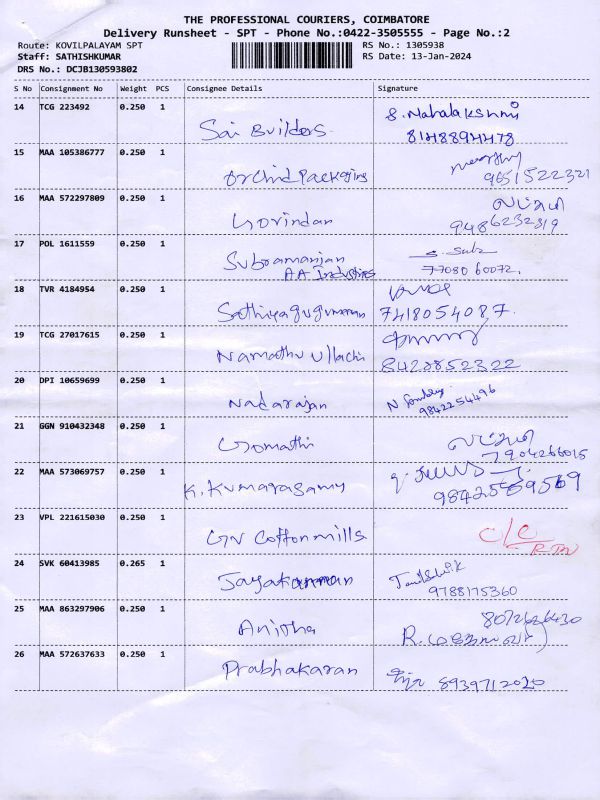 THE PROFESSIONAL COURIERS, COIMBATORE
Delivery Runsheet - SPT - Phone No.:0422-3505555 - Page No.:2
Route: KOVILPALAYAM SPT
RS No.: 1305938
Staff: SATHISHKUMAR
RS Date: 13-Jan-2024
DRS No.: DCJB130593802
S No Consignment No Weight PCS Consignee Details Signature
14 TCG 223492 0.250 1 S. Mahalakshmi
Sai Builders 8148894478
15 MAA 105386777 0.250 1
Orchid Packagins 9651522321
16 MAA 572297809 0.250 1 லட்சுமி
Govindan 9486232319
17 POL 1611559 0.250 1
Subramanian
AA Industries 77080 60072.
18 TVR 4184954 0.250 1
Sathiyagugumaran 7418054087.
19 TCG 27017615 0.250 1
Namathu Ullachi 8428852322
20 DPI 10659699 0.250 1
Nadarajan 9842254496
21 GGN 910432348 0.250 1 லட்சுமி
Gomathi 7904266015
22 MAA 573069757 0.250 1
K. Kumarasamy
23 VPL 221615030 0.250 1 C/C
GV Cottonmills RTN
24 SVK 60413985 0.265 1
Jayakannan 9788175360
25 MAA 863297906 0.250 1 8072626430
Anitha R.
26 MAA 572637633 0.250 1
Prabhakaran 8939712020